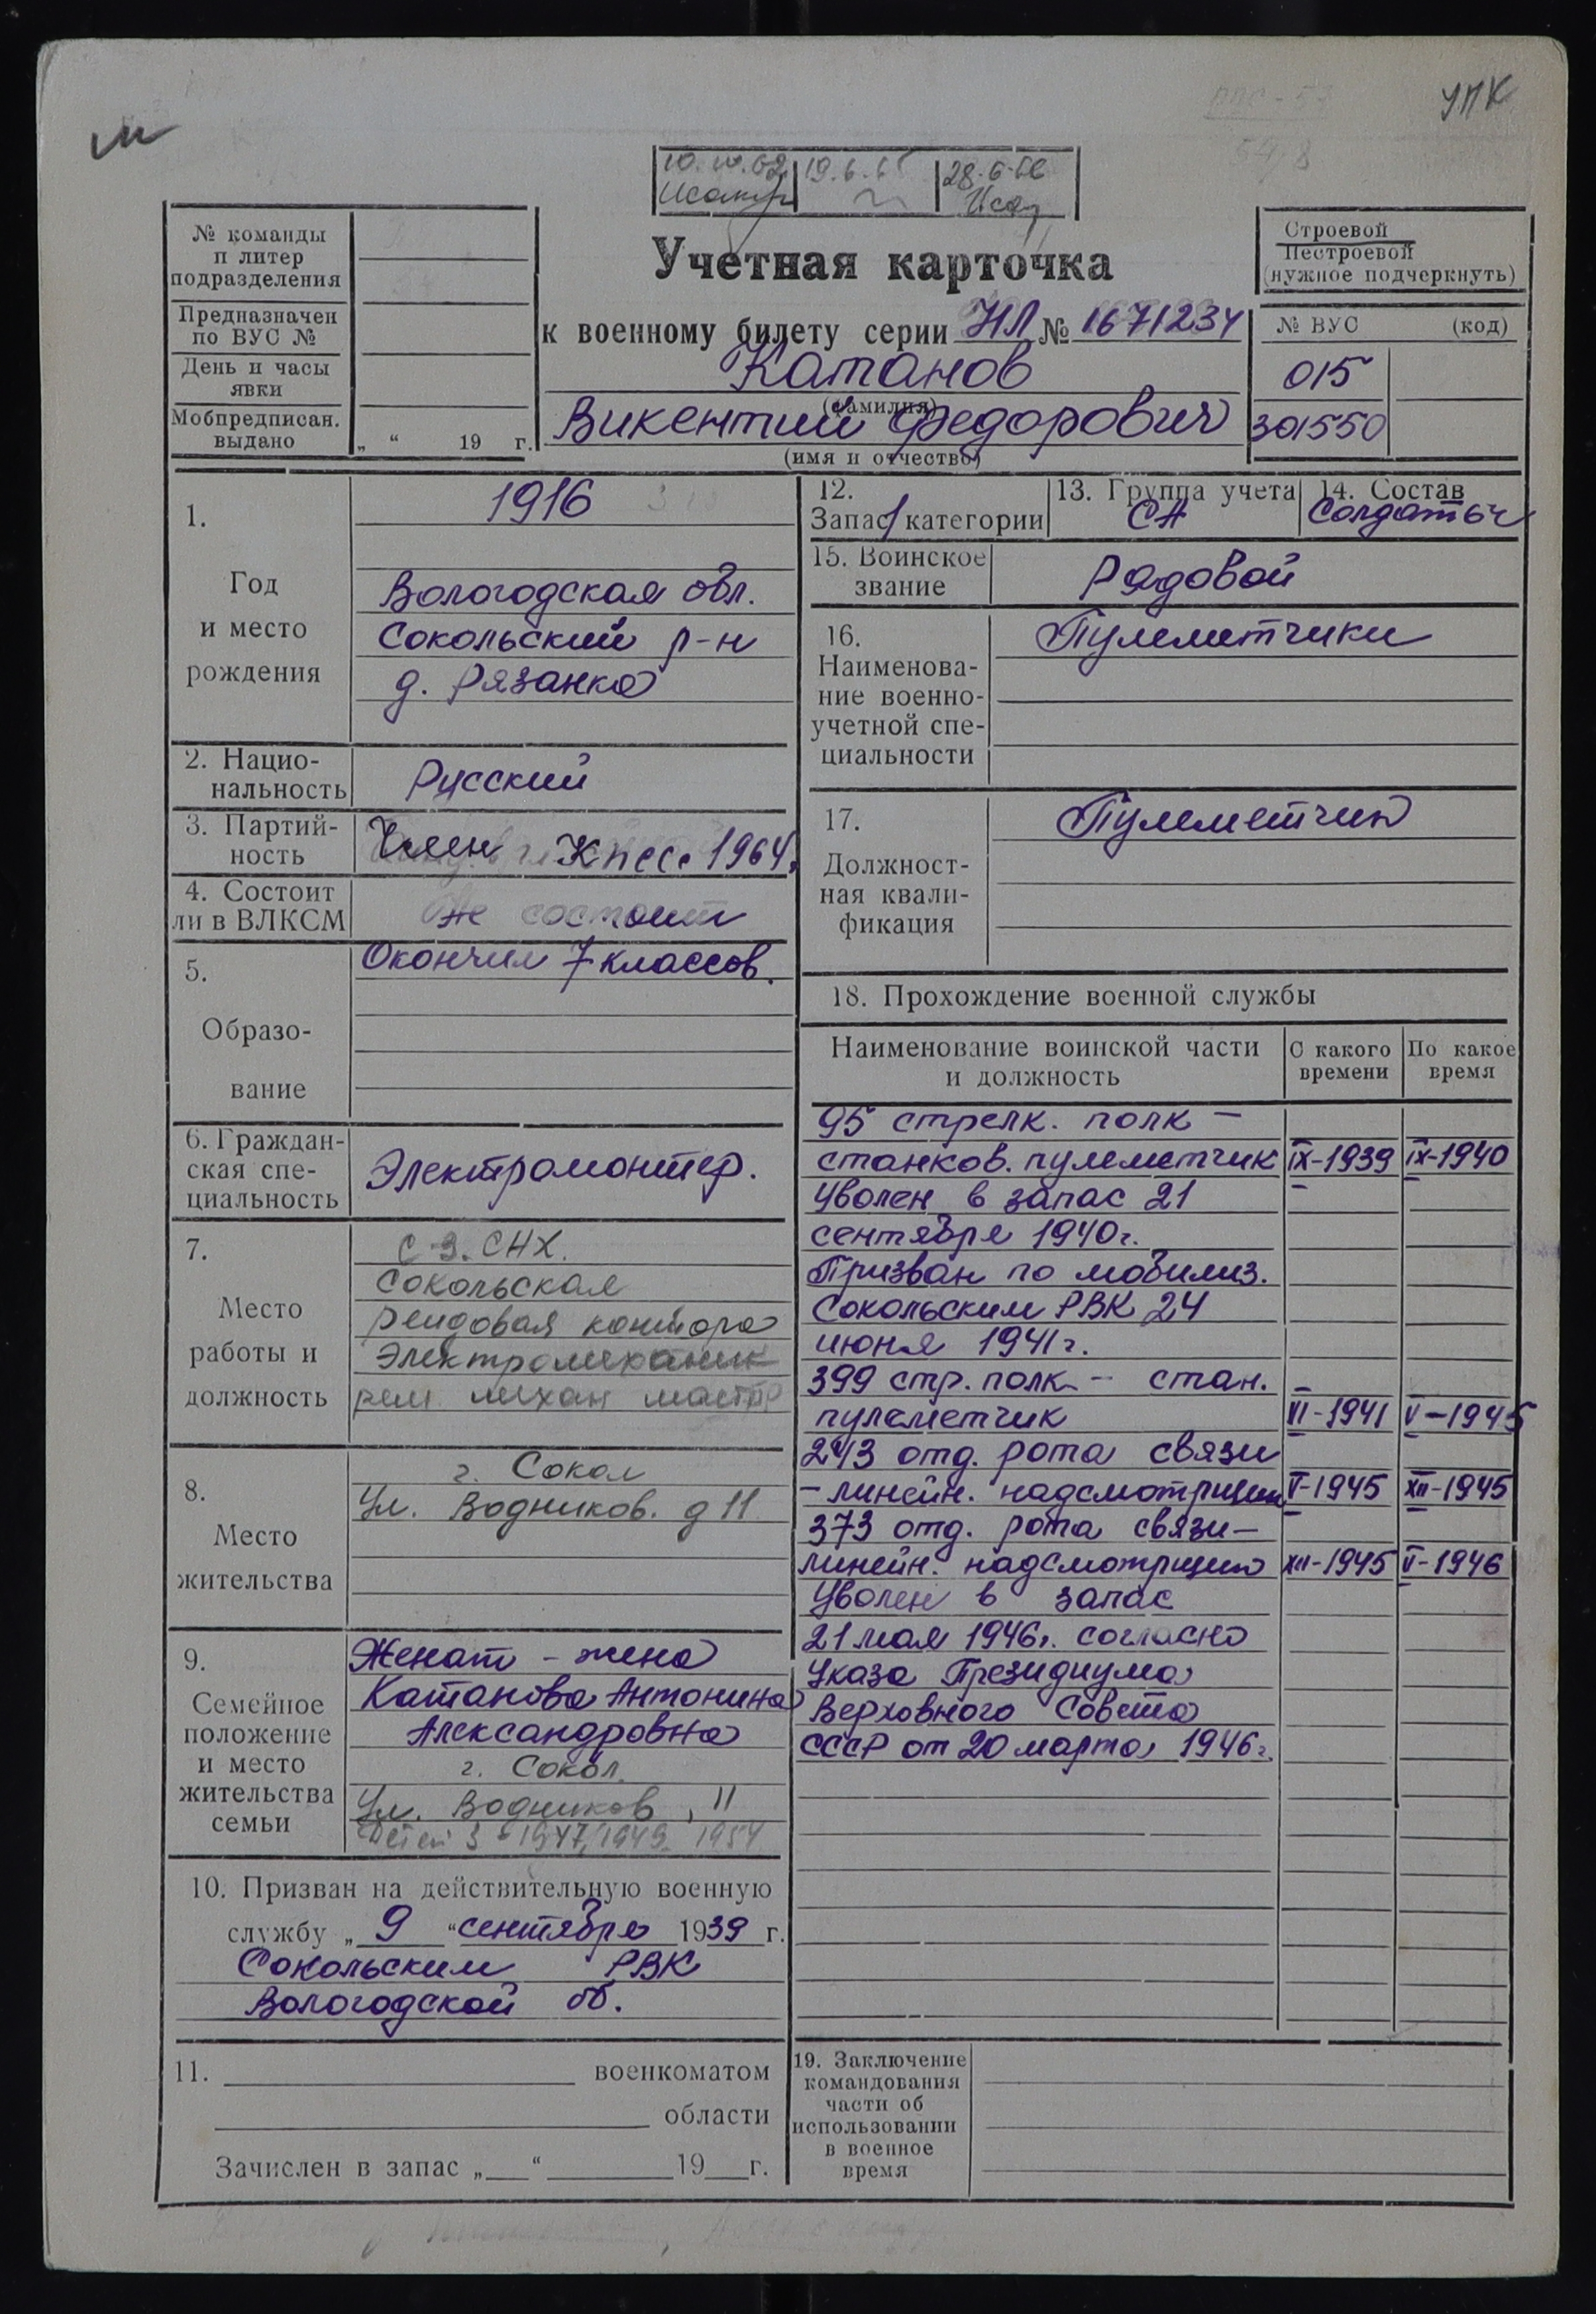 УПК
10.IV.62 19.6.65 28.6.66
Учетная карточка
к военному билету серии НЛ № 1671234
Катанов
(фамилия)
Викентий Федорович
(имя и отчество)
№ команды
и литер
подразделения
Предназначен
по ВУС №
День и часы
явки
Мобпредписан.
выдано „ “ 19 г.
Строевой
Нестроевой
(нужное подчеркнуть)
№ ВУС (код)
015
301550
1.
Год
и место
рождения
1916
Вологодская обл.
Сокольский р-н
д. Рязанка
2. Нацио-
нальность
Русский
3. Партий-
ность
Член КПСС 1964
4. Состоит
ли в ВЛКСМ
Не состоит
5.
Образо-
вание
Окончил 7 классов.
6. Граждан-
ская спе-
циальность
Электромонтер.
7.
Место
работы и
должность
С-З. СНХ.
Сокольская
рейдовая контора
Электромеханик
рем. механ маст
8.
Место
жительства
г. Сокол
Ул. Водников. д 11
9.
Семейное
положение
и место
жительства
семьи
Женат - жена
Катанова Антонина
Александровна
г. Сокол.
Ул. Водников, 11
Детей 3 - 1947, 1949 1954
10. Призван на действительную военную
службу „ 9 “ сентября 1939 г.
Сокольским РВК
Вологодской об.
11. военкоматом
области
Зачислен в запас „ “ 19 г.
12.
Запас 1 категории
13. Группа учета
СА
14. Состав
Солдаты
15. Воинское
звание
Рядовой
16.
Наименова-
ние военно-
учетной спе-
циальности
Пулеметчики
17.
Должност-
ная квали-
фикация
Пулеметчик
18. Прохождение военной службы
Наименование воинской части
и должность
С какого
времени
По какое
время
95 стрелк. полк —
станков. пулеметчик IX-1939 IX-1940
Уволен в запас 21
сентября 1940г.
Призван по мобилиз.
Сокольским РВК 24
июня 1941г.
399 стр. полк - стан.
пулеметчик VI-1941 V-1945
243 отд. рота связи
- линейн. надсмотрщик V-1945 XII-1945
373 отд. рота связи -
линейн. надсмотрщик XII-1945 V-1946
Уволен в запас
21 мая 1946г. согласно
Указа Президиума
Верховного Совета
СССР от 20 марта 1946г.
19. Заключение
командования
части об
использовании
в военное
время